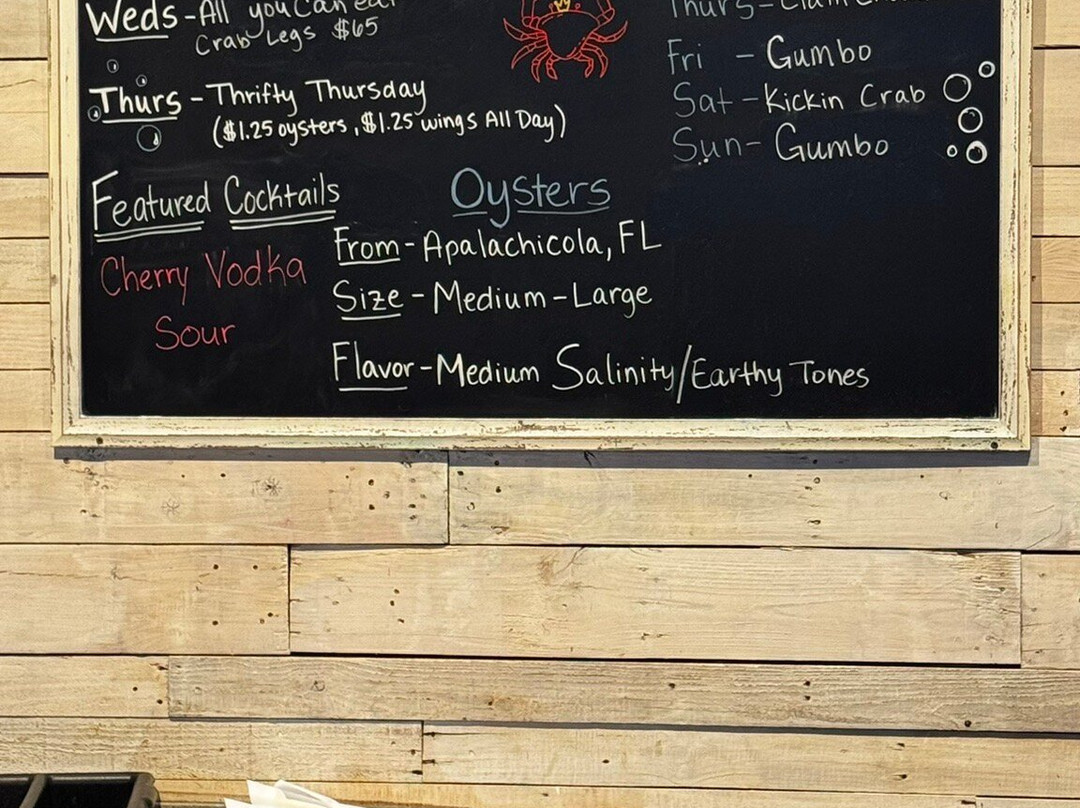 Weds - All you Can eat
Crab Legs $65
Thurs - Thrifty Thursday
($1.25 oysters, $1.25 wings All Day)
Featured Cocktails
Cherry Vodka
Sour
Oysters
From - Apalachicola, FL
Size - Medium - Large
Flavor - Medium Salinity/Earthy Tones
Thurs - Clam
Fri - Gumbo
Sat - Kickin Crab
Sun - Gumbo